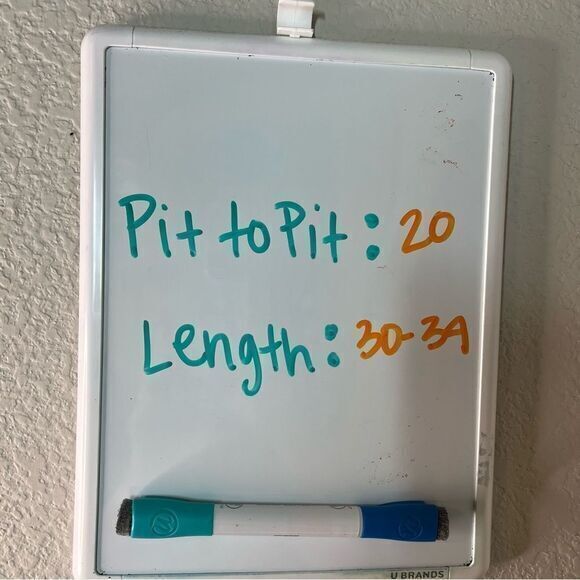 Pit to Pit: 20
Length: 30-34
U BRANDS